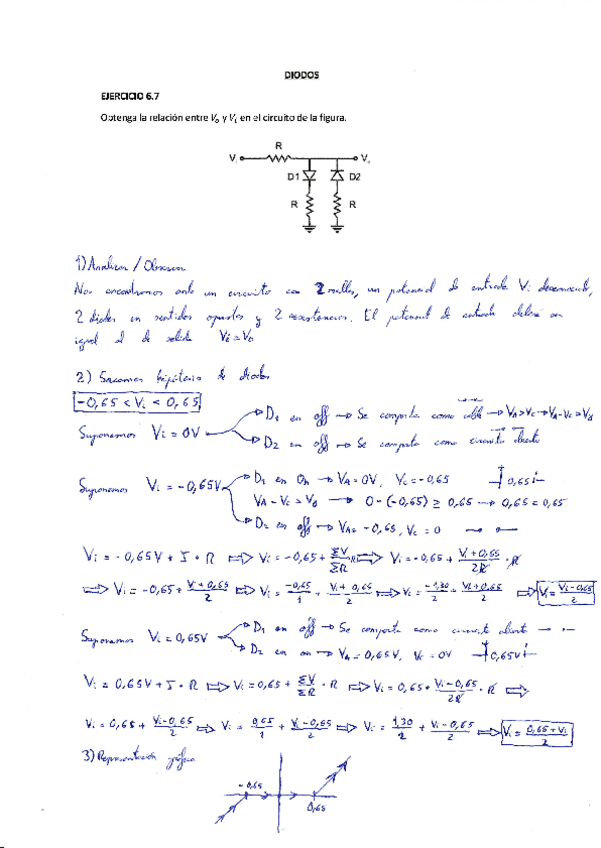 DIODOS
EJERCICIO 6.7
Obtenga la relación entre V₀ y Vᵢ en el circuito de la figura.
R
Vᵢ Vₒ
D1 D2
R R
1) Analizar / Observar
Nos encontramos ante un circuito con 2 mallas, un potencial de entrada Vi desconocido,
2 diodos en sentidos opuestos y 2 resistencias. El potencial de entrada deberá ser
igual al de salida Vi = Vo
2) Sacamos hipótesis de diodos
-0,65 < Vi < 0,65
D₁ en off → Se comporta como cable → VA > VC → VA - VC = Vγ
Suponemos Vi = 0V
D₂ en off → Se comporta como circuito abierto
D₁ en On → VA = 0V, VC = -0,65 0,65
Suponemos Vi = -0,65V
VA - VC > Vγ → 0 - (-0,65) ≥ 0,65 → 0,65 = 0,65
D₂ en off → VA = -0,65, VC = 0
Vi = -0,65V + I · R ⇒ Vi = -0,65 + ΣV/ΣR · R ⇒ Vi = -0,65 + Vi + 0,65/2R · R
⇒ Vi = -0,65 + Vi + 0,65/2 ⇒ Vi = -0,65/1 + Vi + 0,65/2 ⇒ Vi = -1,30/2 + Vi + 0,65/2 ⇒ Vi = Vi - 0,65/2
D₁ en off → Se comporta como circuito abierto
Suponemos Vi = 0,65V
D₂ en on → VA = 0,65V, VC = 0V 0,65V
Vi = 0,65V + I · R ⇒ Vi = 0,65 + ΣV/ΣR · R ⇒ Vi = 0,65 + Vi - 0,65/2R · R ⇒
Vi = 0,65 + Vi - 0,65/2 ⇒ Vi = 0,65/1 + Vi - 0,65/2 ⇒ Vi = 1,30/2 + Vi - 0,65/2 ⇒ Vi = 0,65 + Vi/2
3) Representación gráfica
-0,65
0,65